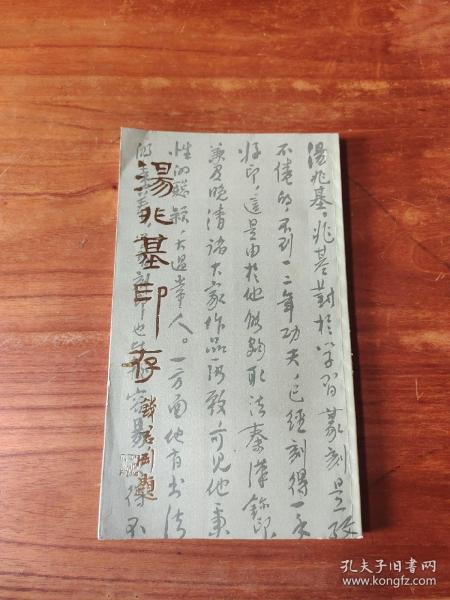 湯兆基，兆基對於學習篆刻是孜
不倦的，不到一二年功夫，已經刻得一手
好印，這是由於他能夠取法秦漢鉨印
兼及晚清諸大家作品所致，可見他秉
性的聰穎，大過常人。一方面他有書法
印也 容易 得不
湯兆基印存
錢君匋題
孔夫子旧书网
www.kongfz.com